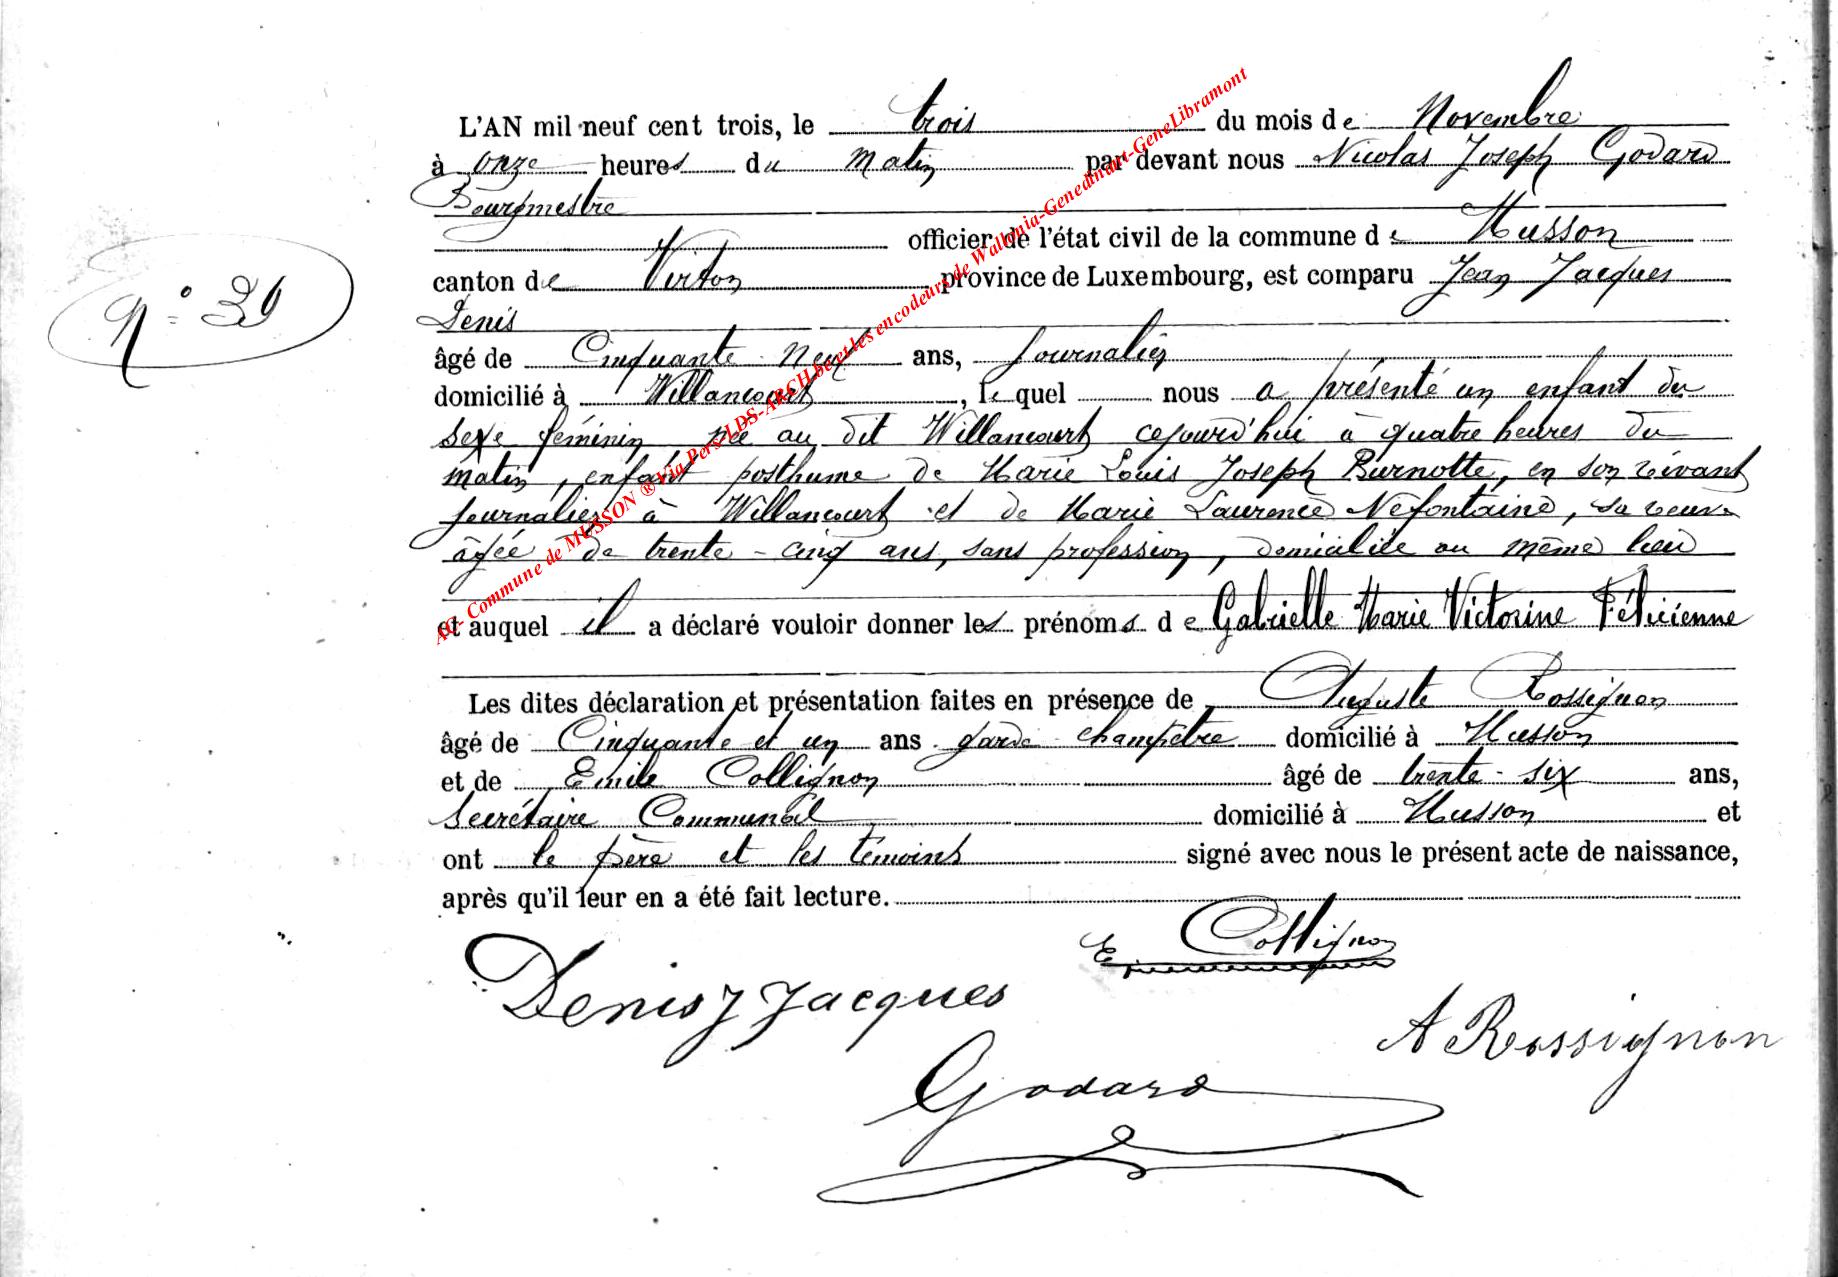 L'AN mil neuf cent trois, le trois du mois de Novembre
à onze heures du matin par devant nous Nicolas Joseph Godard
Bourgmestre
officier de l'état civil de la commune de Musson
canton de Virton province de Luxembourg, est comparu Jean Jacques
Denis
N° 39
âgé de Cinquante neuf ans, journalier
domicilié à Willancourt, lequel nous a présenté un enfant du
sexe féminin née au dit Willancourt cejourd'hui à quatre heures du
matin, enfant posthume de Marie Louis Joseph Burnotte, en son vivant
journalier à Willancourt et de Marie Laurence Néfontaine, sa veuve
âgée de trente-cinq ans, sans profession, domiciliée au même lieu
et auquel il a déclaré vouloir donner les prénoms de Gabrielle Marie Victorine Félicienne
Les dites déclaration et présentation faites en présence de Auguste Rossignon
âgé de Cinquante et un ans garde champêtre domicilié à Musson
et de Emile Collignon âgé de trente-six ans,
Secrétaire Communal domicilié à Musson et
ont le père et les témoins signé avec nous le présent acte de naissance,
après qu'il leur en a été fait lecture.
E Collignon
Denis J Jacques
A Rossignon
Godard
AG Commune de MUSSON ® Via Pers-LDS-ARCH.be et les encodeurs de Wallonia-Genedinant-GeneLibramont